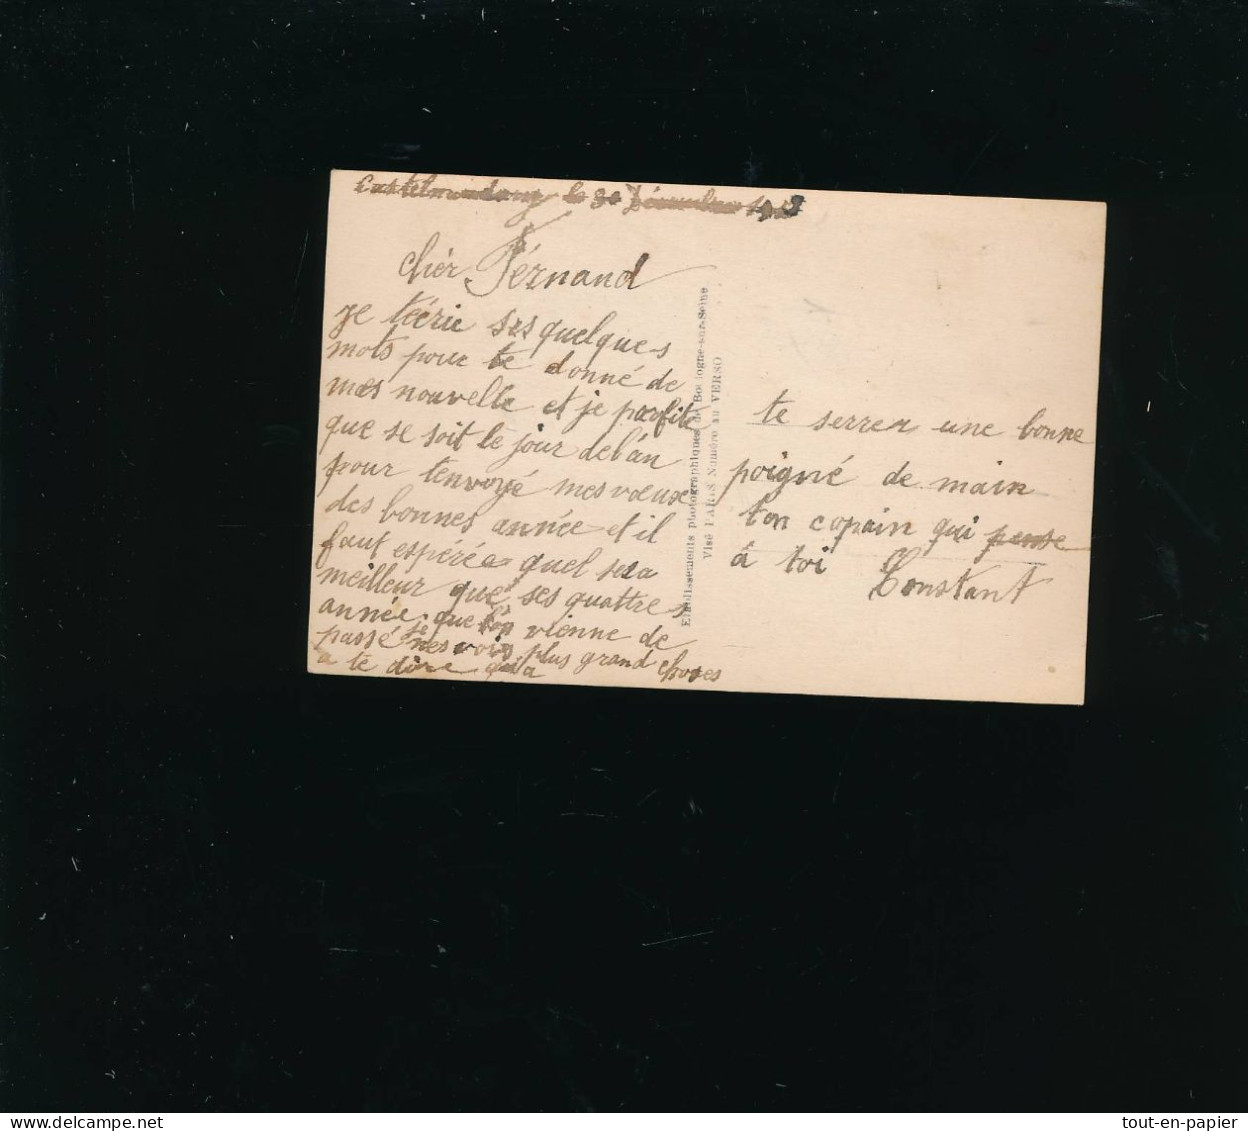 le 30 Décembre
chér Férnand
je técrie ses quelques
mots pour te donné de
mes nouvelle et je profite
que se soit le jour delan
pour tenvoyé mes voeux
des bonnes année et il
faut espérée quel sera
meilleur que ses quattres
année que lon vienne de
passé je nes vois plus grand choses
a te dire qu'a
te serrer une bonne
poigné de main
ton copain qui pense
à toi Constant
Etablissements photographiques de Boulogne-sur-Seine
Visé PARIS Numéro au VERSO
delcampe.net
tout-en-papier